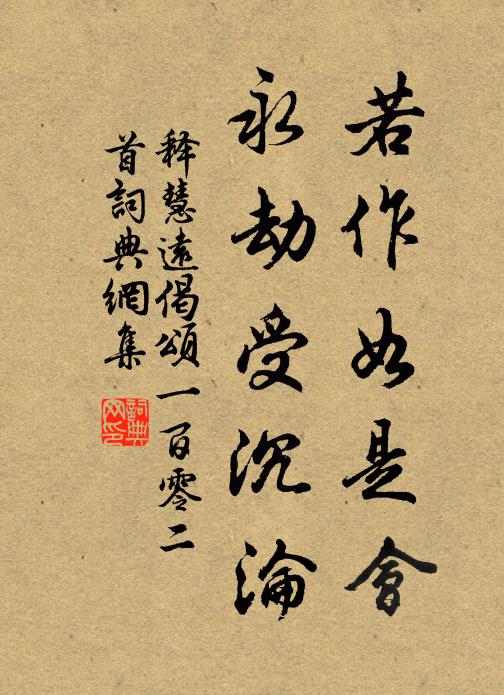 若作如是會
永劫受沉淪
释慧遠偈頌一百零二
首詞典網集
詞典
网印